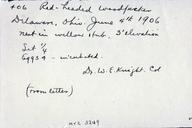 406 Red-headed Woodpecker
Delaware, Ohio. June 4th 1906
Nest in willow stub, 3' elevation
Set 1/
Eggs - incubated.
Dr. W. E. Knight. Col
(from letter)